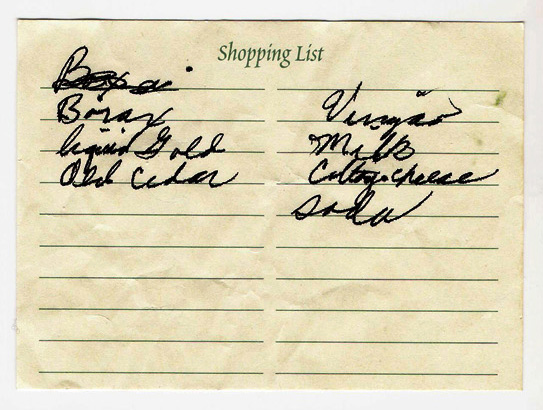 Shopping List
Borax
liquid Gold
Old Cedar
Vinegar
Milk
Cottage cheese
soda